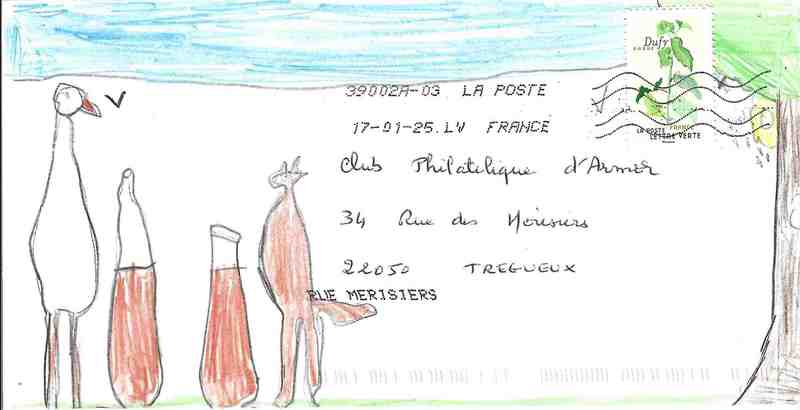 Dufy
39002A-03 LA POSTE
17-01-25.LV FRANCE
LA POSTE FRANCE
LETTRE VERTE
Club Philatelique d'Armor
34 Rue des Merisiers
22050 TREGUEUX
RUE MERISIERS